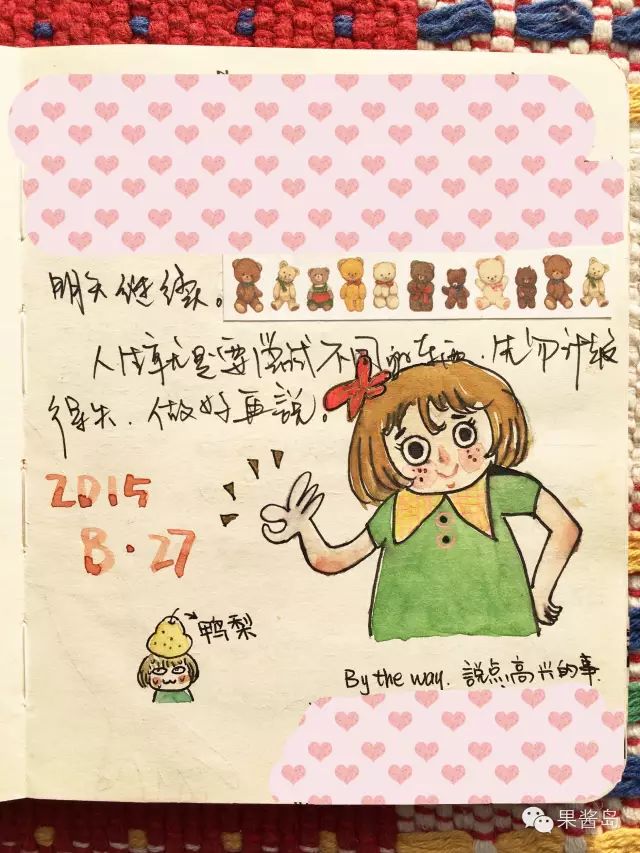 明天继续。
人生就是要尝试不同的东西,先勿计较
得失,做好再說。
2015
8·27
鸭梨
By the way. 說点高兴的事.
果酱岛